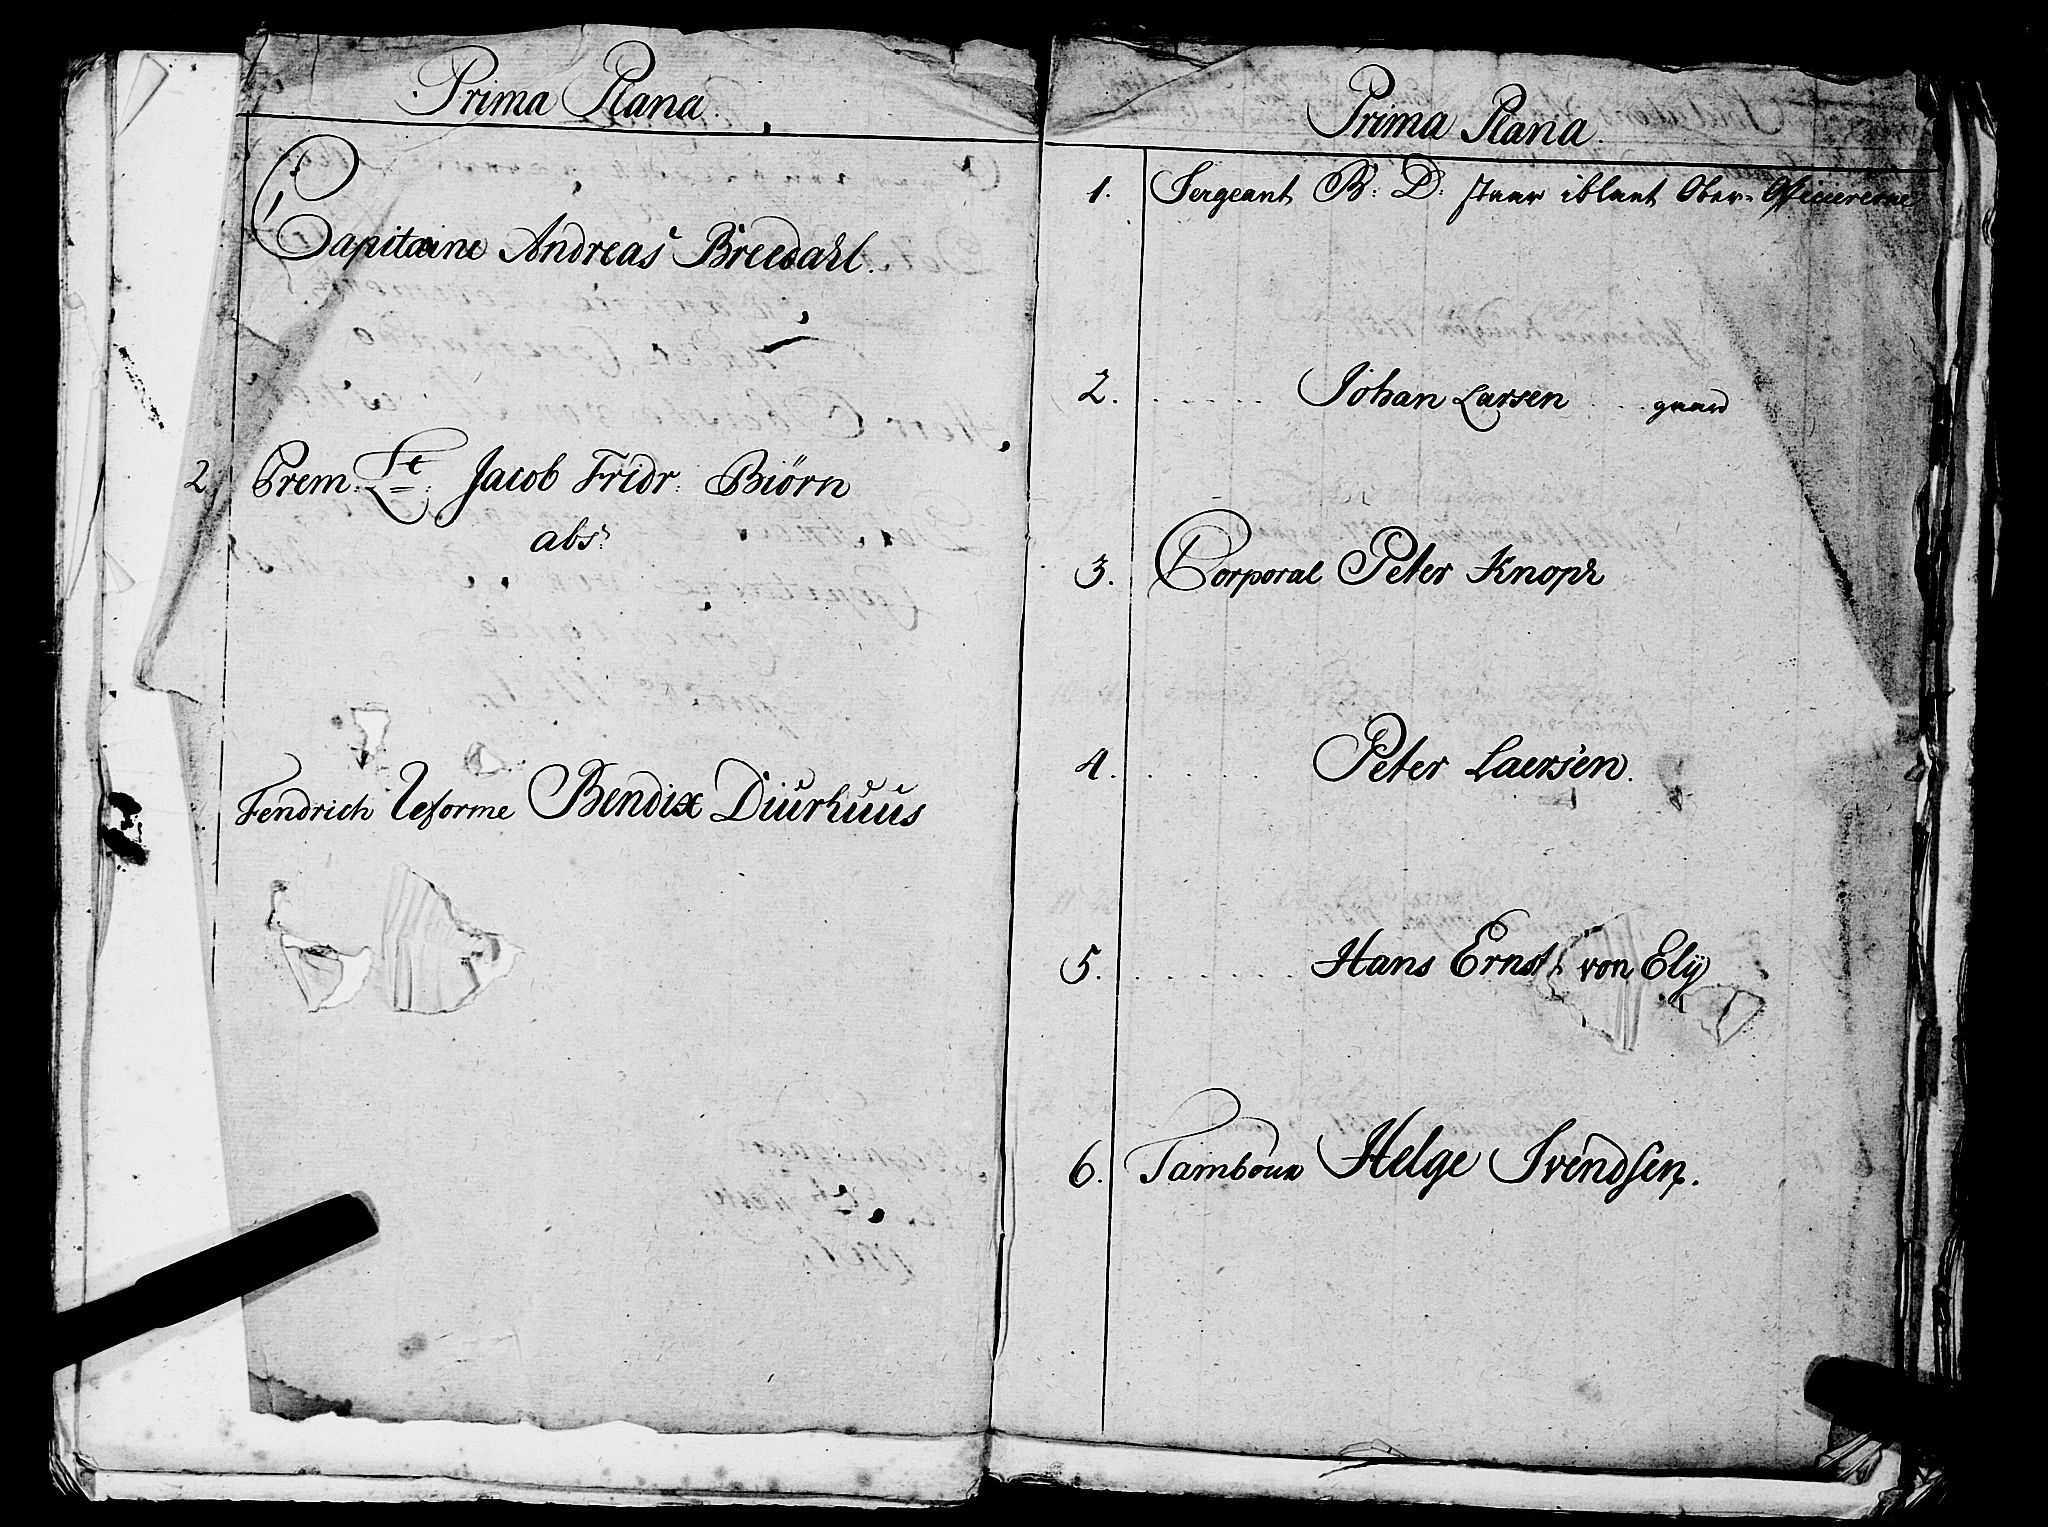 Prima Plana.
Capitaine Andreas Breedahl.
2. Prem. Lt: Jacob Fridr: Biörn
abs:
Fendrich Reforme Bendix Diurhuus
Prima Plana.
1. Sergeant B: D: staar iblant Ober-Officiererne
2. . . . . . Johan Larsen . . . gaard
3. Corporal Peter Knoph
4. . . . . . Peter Laersen.
5. . . . . . . Hans Ernst von Elÿ
6. Tambour Helge Svendsen.